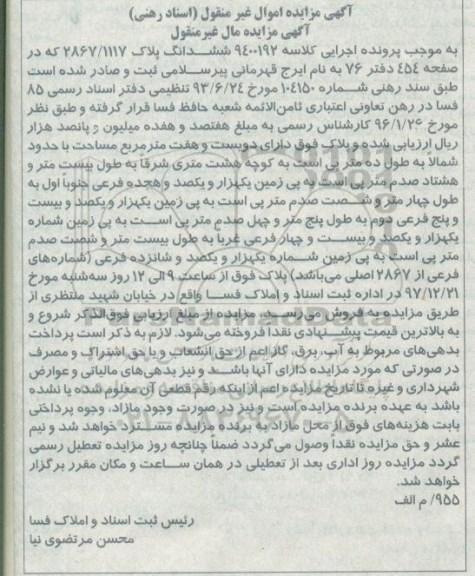 آگهی مزایده اموال غیر منقول (اسناد رهنی)
آگهی مزایده مال غیرمنقول
به موجب پرونده اجرایی کلاسه ۹۴۰۰۱۹۲ ششدانگ پلاک ۲۸۶۷/۱۱۱۷ که در
صفحه ۴۵۴ دفتر ۷۶ به نام ایرج قهرمانی پیرسلامی ثبت و صادر شده است
طبق سند رهنی شماره ۱۰۴۱۵۰ مورخ ۹۳/۶/۲۴ تنظیمی دفتر اسناد رسمی ۸۵
فسا در رهن تعاونی اعتباری ثامن‌الائمه شعبه حافظ فسا قرار گرفته و طبق نظر
مورخ ۹۶/۱/۲۶ کارشناس رسمی به مبلغ هفتصد و هفده میلیون و پانصد هزار
ریال ارزیابی شده و پلاک فوق دارای دویست و هفت مترمربع مساحت با حدود
شمالاً به طول ده متر پی است به کوچه هشت متری شرقاً به طول بیست متر و
هشتاد صدم متر پی است به پی زمین یکهزار و یکصد و هجده فرعی جنوباً اول به
طول چهار متر و شصت صدم متر پی است به پی زمین یکهزار و یکصد و بیست
و پنج فرعی دوم به طول پنج متر و چهل صدم متر پی است به پی زمین شماره
یکهزار و یکصد و بیست و چهار فرعی غرباً به طول بیست متر و شصت صدم
متر پی است به پی زمین شماره یکهزار و یکصد و شانزده فرعی (شماره‌های
فرعی از ۲۸۶۷ اصلی می‌باشد) پلاک فوق از ساعت ۹ الی ۱۲ روز سه‌شنبه مورخ
۹۷/۱۲/۲۱ در اداره ثبت اسناد و املاک فسا واقع در خیابان شهید منتظری از
طریق مزایده به فروش می‌رسد. مزایده از مبلغ ارزیابی فوق‌الذکر شروع و
به بالاترین قیمت پیشنهادی نقداً فروخته می‌شود. لازم به ذکر است پرداخت
بدهی‌های مربوط به آب، برق، گاز اعم از حق انشعاب و یا حق اشتراک و مصرف
در صورتی که مورد مزایده دارای آنها باشد و نیز بدهی‌های مالیاتی و عوارض
شهرداری و غیره تا تاریخ مزایده اعم از اینکه رقم قطعی آن معلوم شده یا نشده
باشد به عهده برنده مزایده است و نیز در صورت وجود مازاد، وجوه پرداختی
بابت هزینه‌های فوق از محل مازاد به برنده مزایده مسترد خواهد شد و نیم
عشر و حق مزایده نقداً وصول می‌گردد ضمناً چنانچه روز مزایده تعطیل رسمی
گردد مزایده روز اداری بعد از تعطیلی در همان ساعت و مکان مقرر برگزار
خواهد شد.
۹۵۵/ م الف
رئیس ثبت اسناد و املاک فسا
محسن مرتضوی نیا